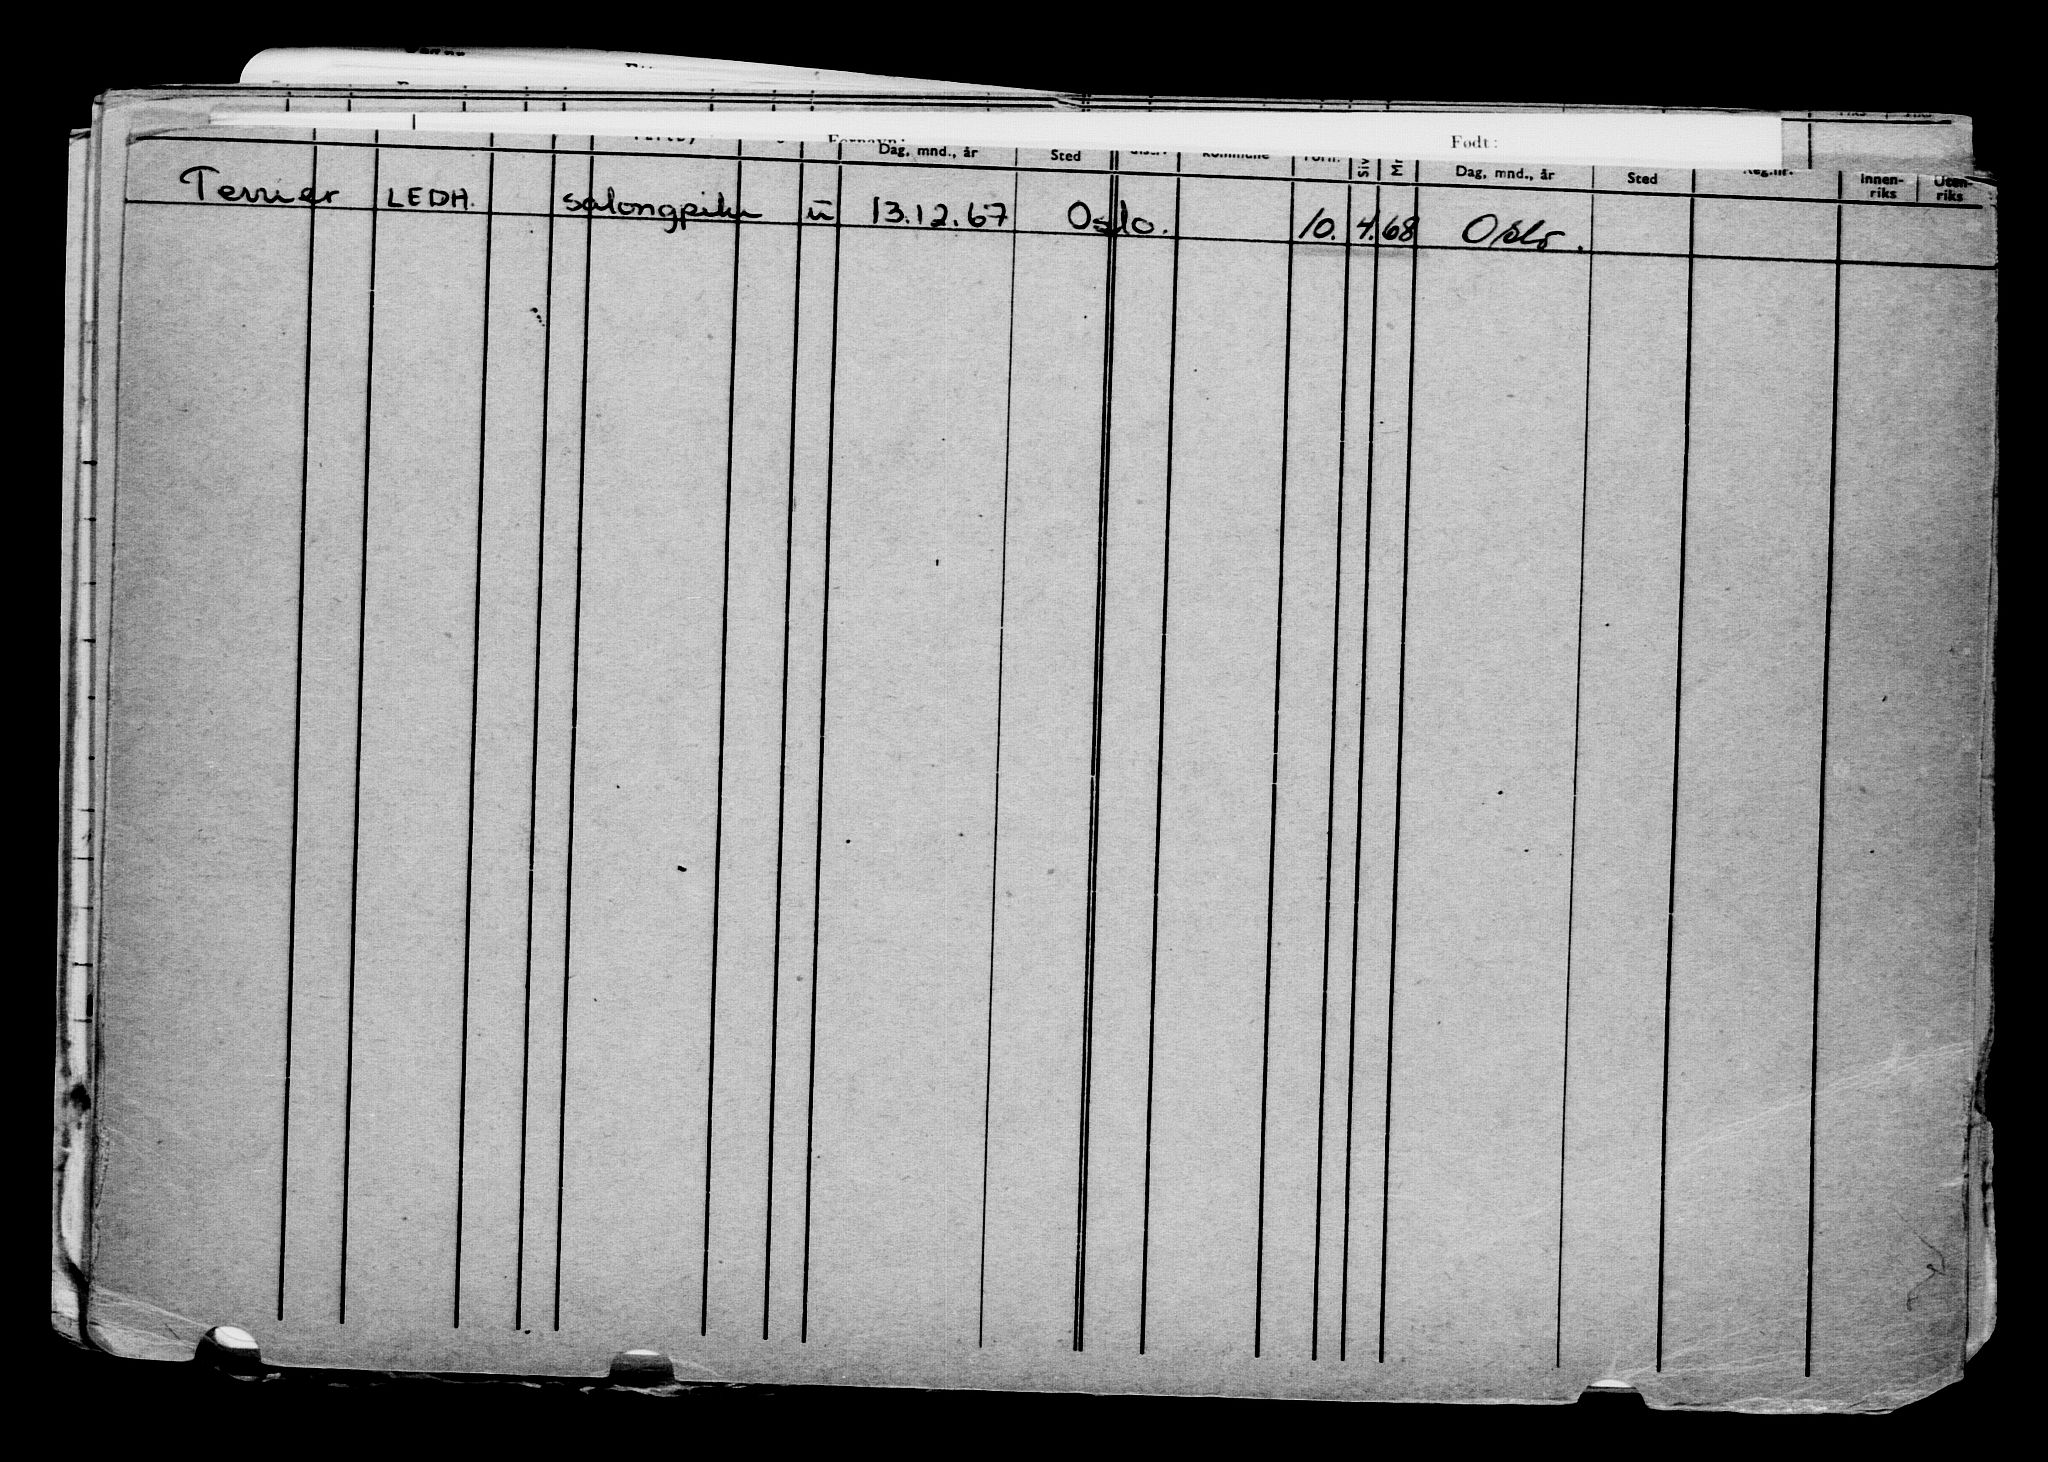 Født:
Dag, mnd., år Sted kommune Form. Siv Dag, mnd., år Sted Reg.nr. Innen-riks Uten-riks
Terrier LEDH. salongpike u 13.12.67 Oslo. 10. 4.68 Oslo.